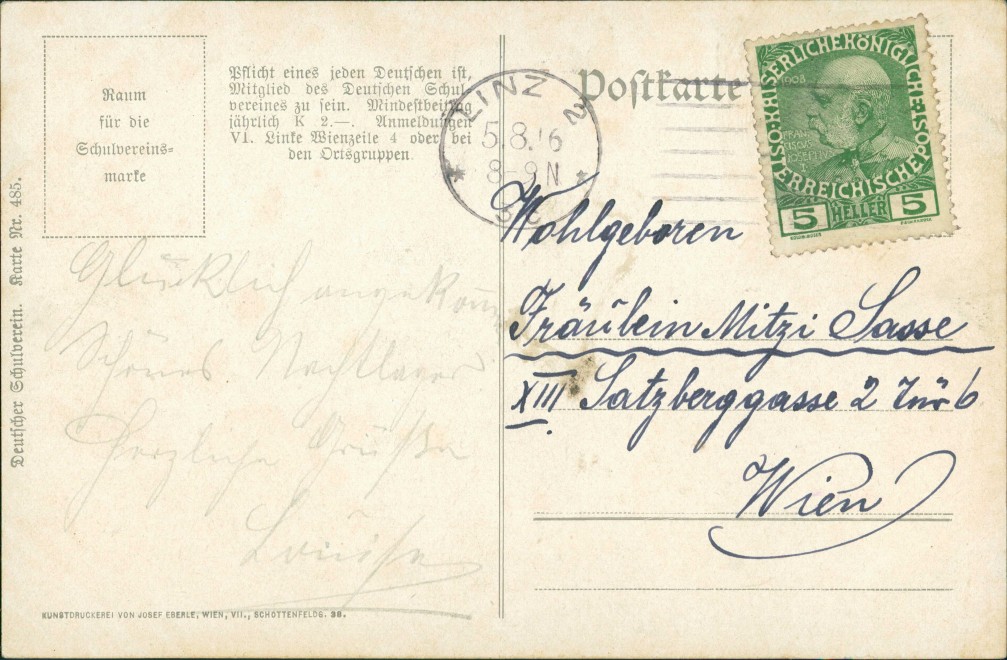 Raum
für die
Schulvereins=
marke
Pflicht eines jeden Deutschen ist,
Mitglied des Deutschen Schul
vereines zu sein. Mindestbeitrag
jährlich K 2.—. Anmeldungen
VI. Linke Wienzeile 4 oder bei
den Ortsgruppen.
Deutscher Schulverein. Karte Nr. 485.
Postkarte
LINZ 2
5.8.16
8-9N
* *
K.K. ÖSTERREICHISCHE POST
KAISERLICHEKÖNIGLICHE
1908
FRAN
CISCUS
JOSEPH I
5 HELLER 5
Wohlgeboren
Fräulein Mitzi Sasse
XIII Satzberggasse 2 Tür 6
Wien
Glücklich angekom
Schönes Nachtlager
Herzliche Grüße
Louise
KUNSTDRUCKEREI VON JOSEF EBERLE, WIEN, VII., SCHOTTENFELDG. 38.